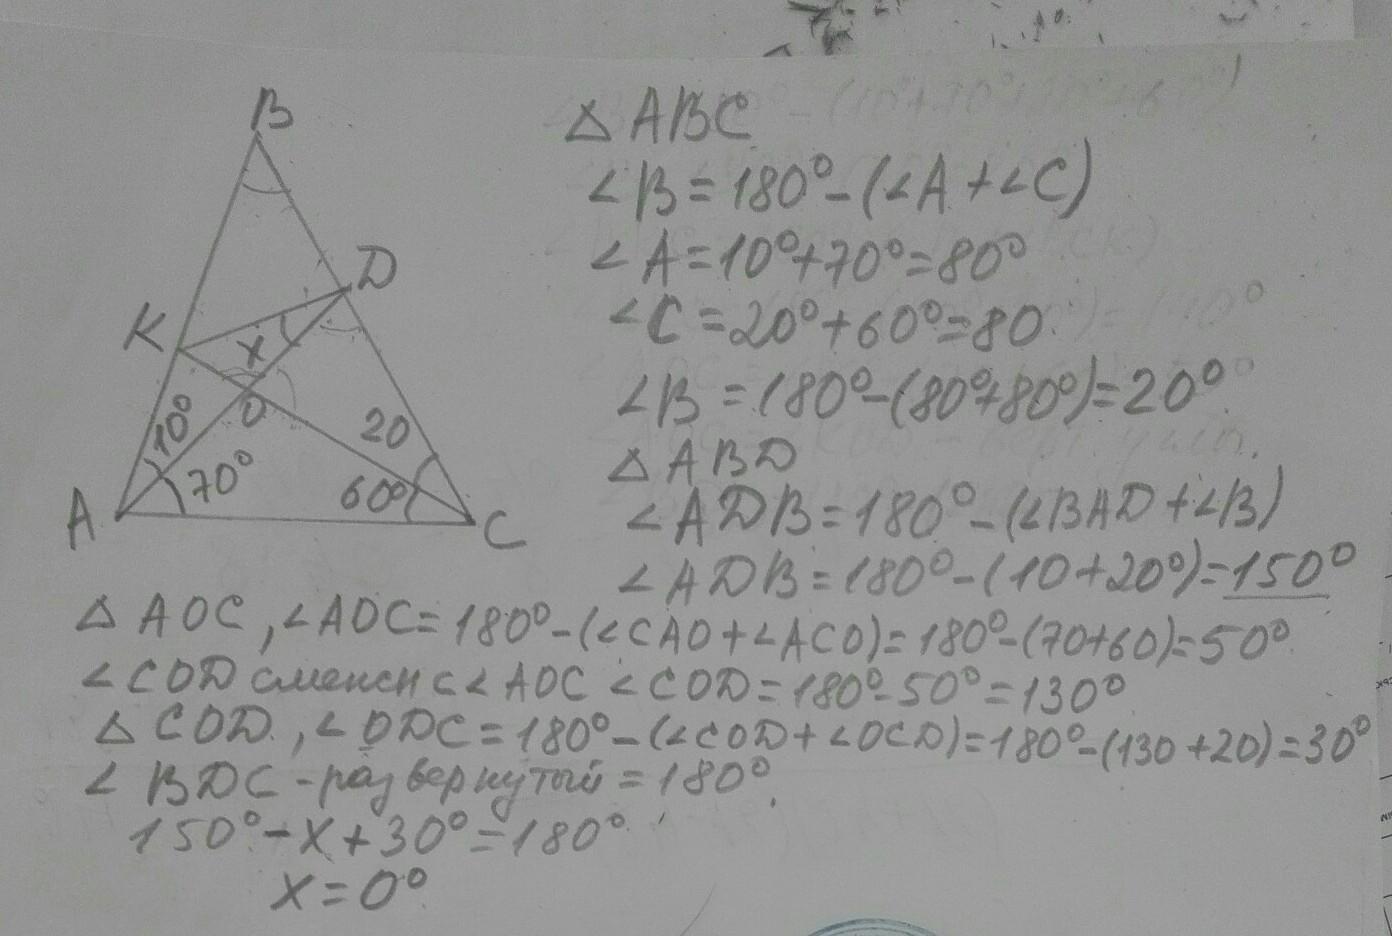 B
D
K
x
O
10°
70°
20
60°
A
C
△ ABC
∠B = 180° - (∠A + ∠C)
∠A = 10° + 70° = 80°
∠C = 20° + 60° = 80
∠B = 180° - (80° + 80°) = 20°
△ ABD
∠ADB = 180° - (∠BAD + ∠B)
∠ADB = 180° - (10 + 20°) = 150°
△ AOC, ∠AOC = 180° - (∠CAO + ∠ACO) = 180° - (70 + 60) = 50°
∠COD смежн с ∠AOC ∠COD = 180° - 50° = 130°
△ COD, ∠ODC = 180° - (∠COD + ∠OCD) = 180° - (130 + 20) = 30°
∠ BDC - развернутый = 180°
150° - x + 30° = 180°
x = 0°